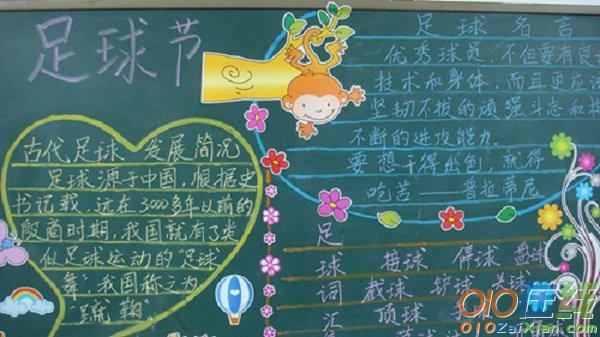 足球节
古代足球 发展简况
足球源于中国,根据史
书记载,远在3000多年以前的
殷商时期,我国就有了类
似足球运动的"足球
舞",我国称之为
足球名言
优秀球员,不但要有良
技术和身体,而且更应
坚韧不拔的顽强斗志和
不断的进攻能力.
要想干得出色,就得
吃苦——普拉蒂尼
足球词汇
接球 停球 盘球
截球 铲球 头球
顶球
010ZaiXian.com